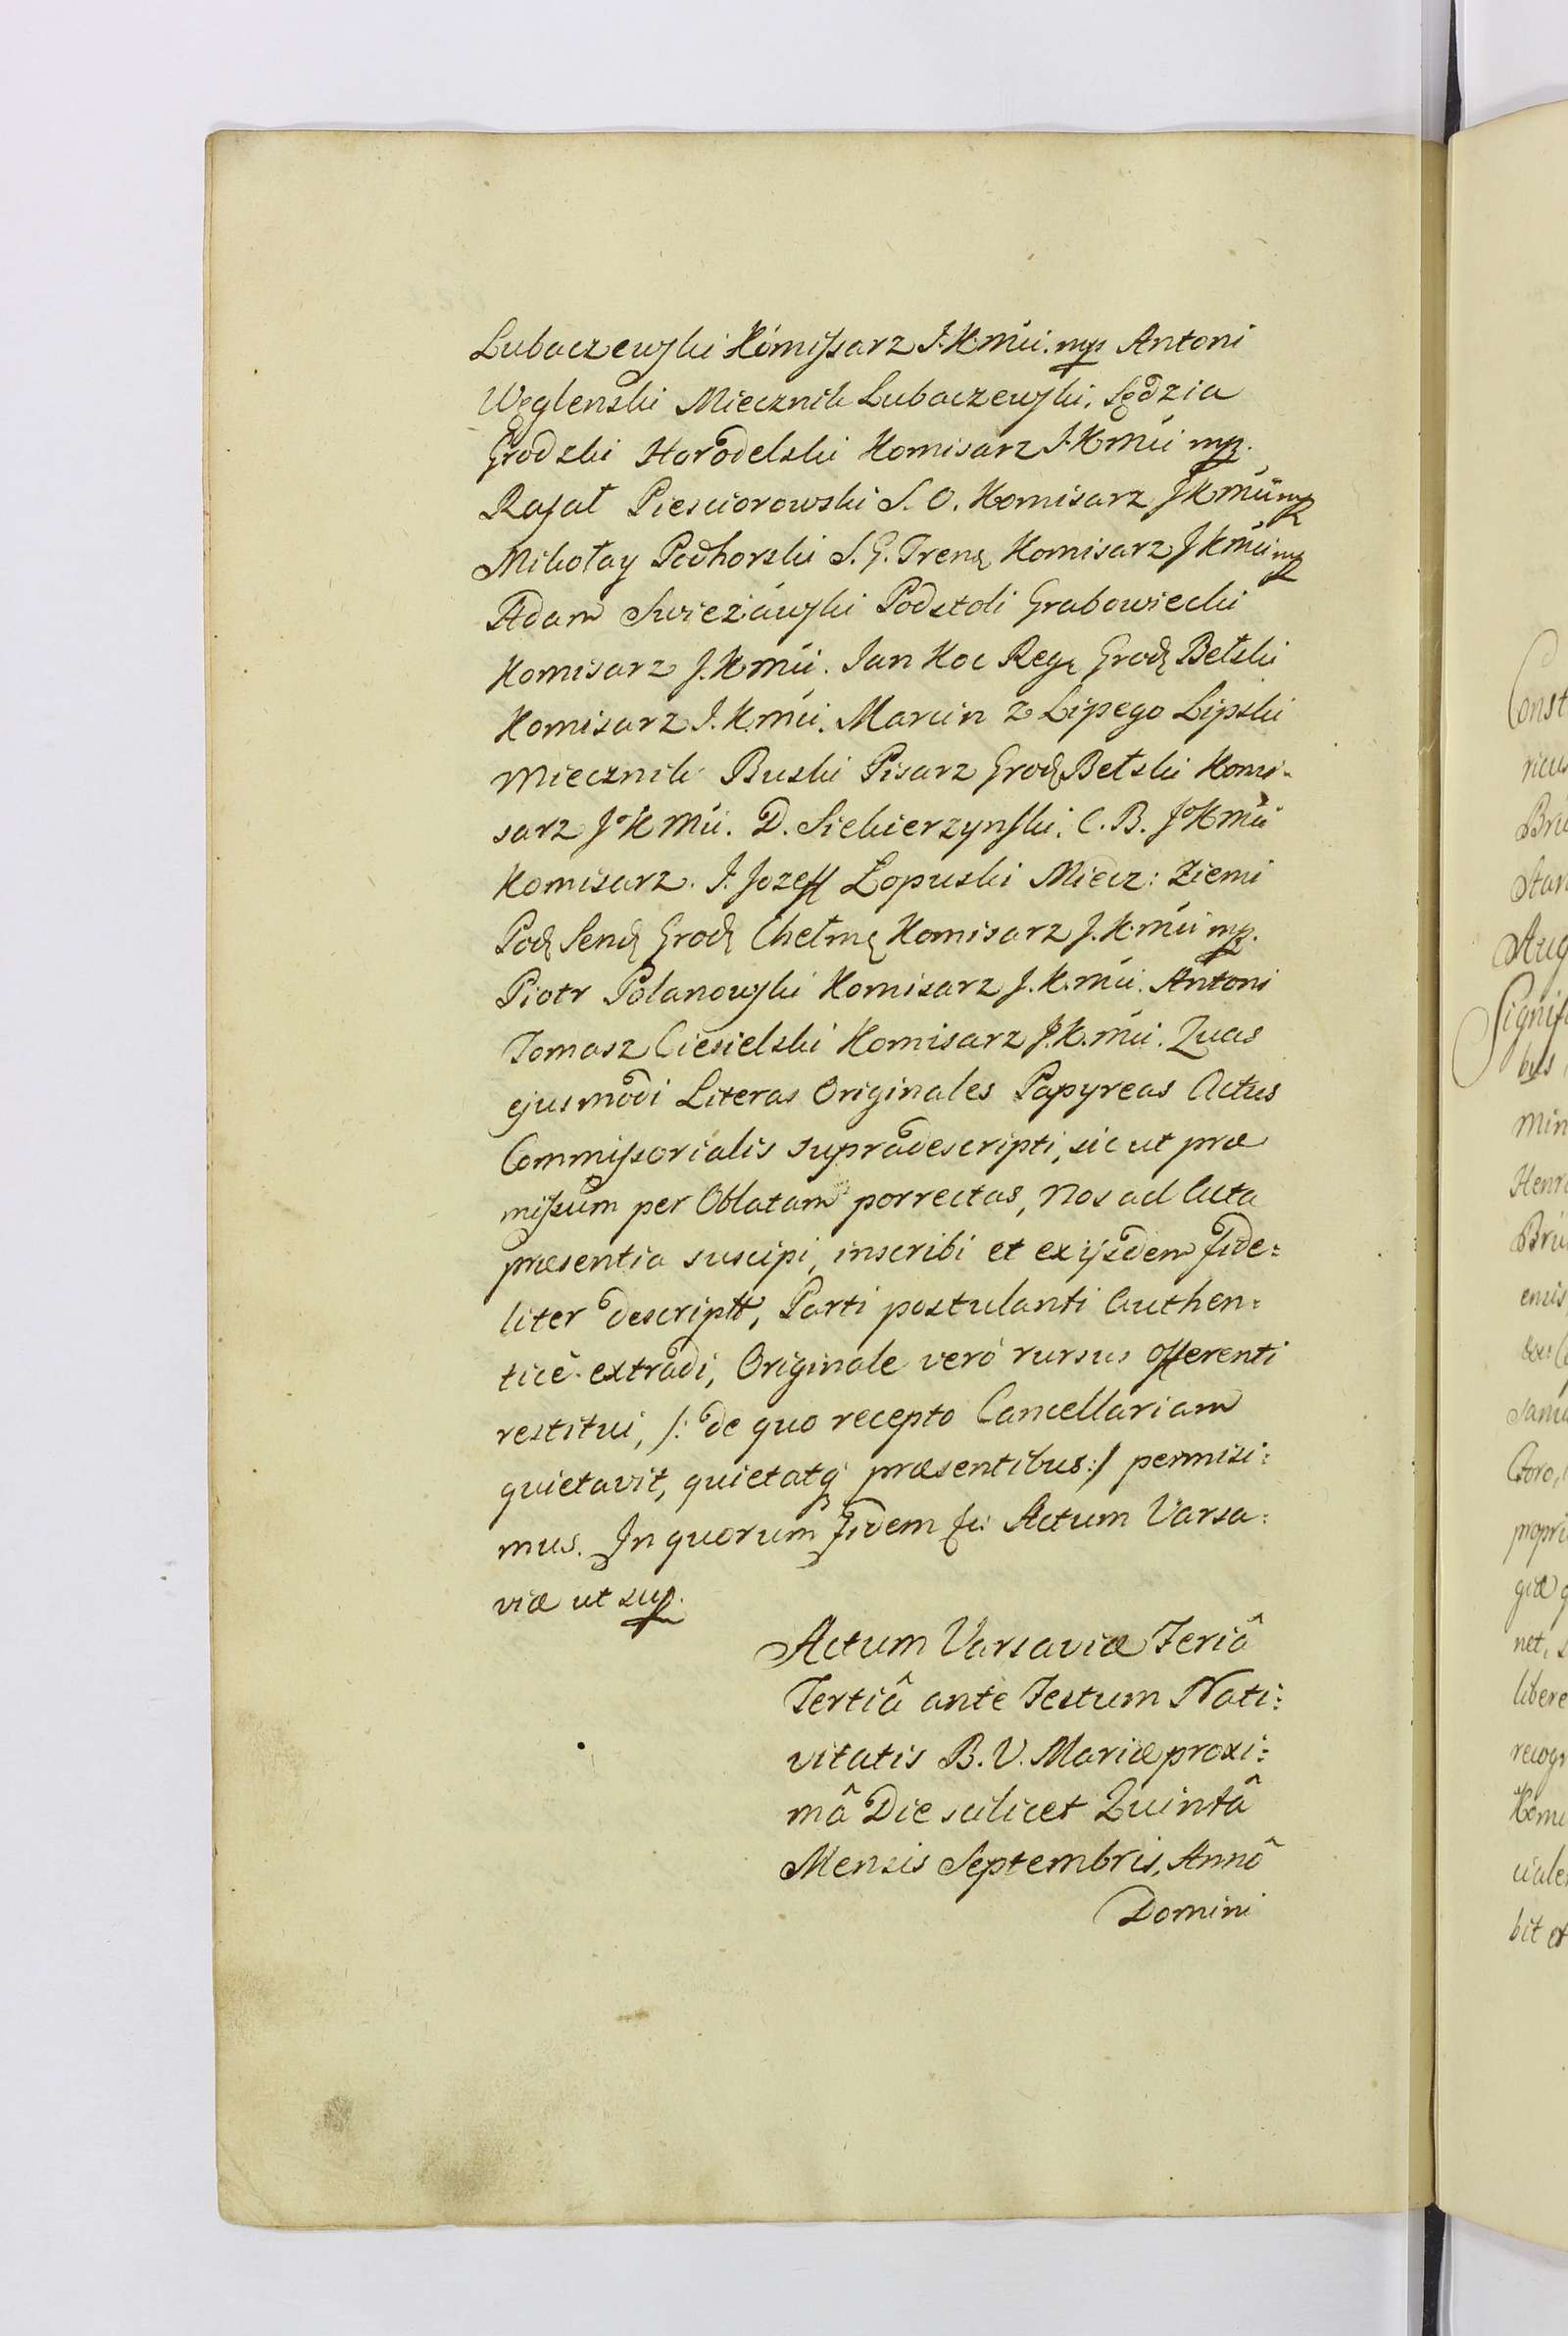 Lubaczewski Kómissarz J.K.mći. mp Antoni
Węglenski Miecznik Lubaczewski, Sędzia
Grodzki Horodelski Komisarz J.Kmći mp.
Rafał Piesciorowski S. O. Komisarz JKmći mp
Mikołay Podhorski S. G. Tremḅ Komisarz JKmći mp
Adam Swieżáwski Podstoli Grabowiecki
Komisarz J.Kmći. Jan Koc Reg Grod Bełski
Komisarz J.K.mći. Marcin z Lipego Lipski
Miecznik Buski Pisarz Grod Bełski Komi-
sarz JoKMći. D. Siekierzynski. C. B. JoKMći
Komisarz. J. Jozeff Łopuski Miecz: Ziemi
Pod Send Grod Chełm Komisarz J.K.mći mp.
Piotr Polanowski Komisarz J.K.mći. Antoni
Tomasz Ciesielski Komisarz J.K.mći. Quas
ejusmodi Literas Originales Papyreas Actus
Commissorialis supradescripti, sic ut præ
missum per Oblatam porrectas, Nos ad Acta
præsentia suscipi, inscribi et ex ijsdem fide=
liter descriptt, Parti postulanti Authen=
ticè extradi, Originale verò rursus offerenti
restitui, /: de quo recepto Cancellariam
quietavit, quietatq præsentibus :/ permisi=
mus. In quorum fidem &c: Actum Varsa=
viæ ut sup.
Actum Varsaviæ Feriâ
Tertiâ ante Festum Nati=
vitatis B. V. Mariæ proxi=
mâ Die scilicet Quintâ
Mensis Septembris, Annô
Domini
Const
ricus
Brü
Star
Aug
Signif
bus
Min
Henr
Brü
ensis
Samu
Coro,
propri
giæ q
net, s
libere
recogn
Komi
ciale
bit et